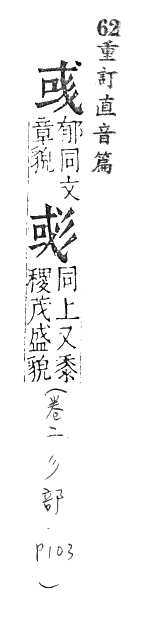 62重訂直音篇
彧
郁同文
章貌
同上又黍
稷茂盛貌
(卷二彡部.P103)